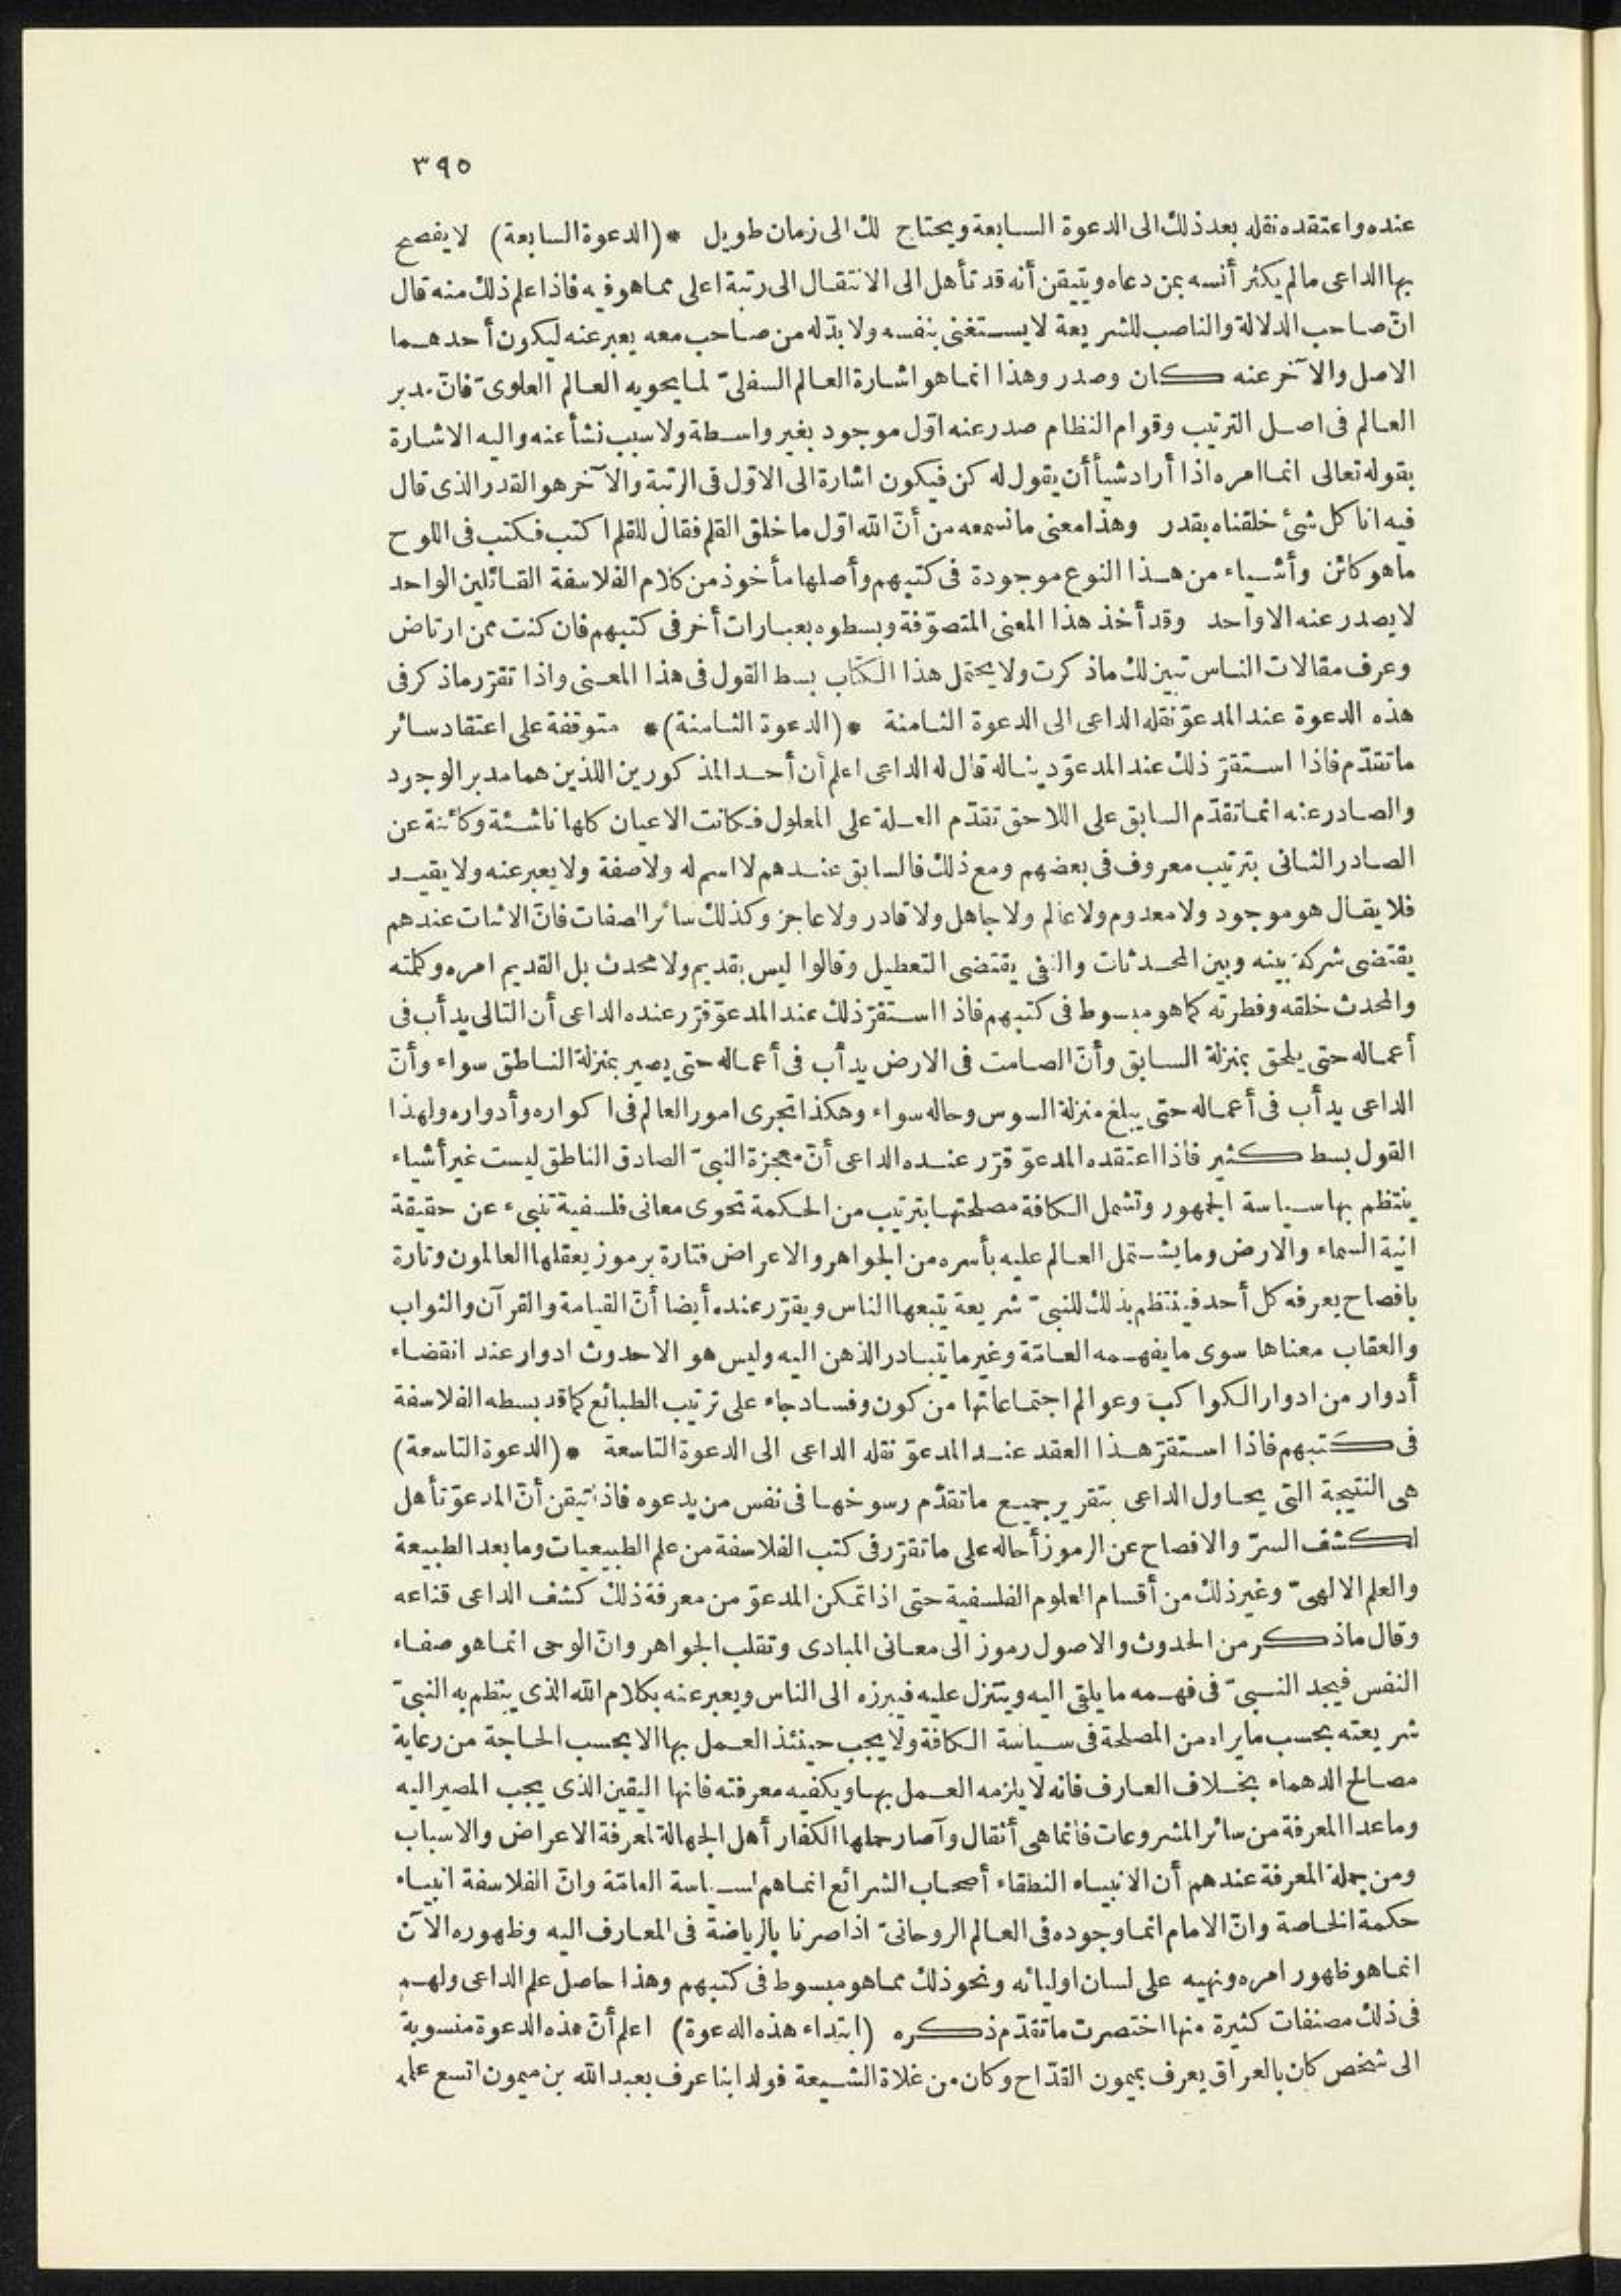 ٣٩٥
عنده واعتقده نقله بعد ذلك الى الدعوة السابعة ويحتاج لك الى زمان طويل * (الدعوة السابعة) لا يفصح
بها الداعى ما لم يكثر أنسه بمن دعاه ويتيقن أنه قد تأهل الى الانتقال الى رتبة اعلى مما هو فيه فاذا علم ذلك منه قال
انّ صاحب الدلالة والناصب للشريعة لا يستغنى بنفسه ولا بدّ له من صاحب معه يعبر عنه ليكون أحدهما
الاصل والآخر عنه كان وصدر وهذا انما هو اشارة العالم السفلىّ لما يحويه العالم العلوىّ فانّ مدبر
العالم فى اصل الترتيب وقوام النظام صدر عنه اوّل موجود بغير واسطة ولا سبب نشأ عنه واليه الاشارة
بقوله تعالى انما امره اذا أراد شيأ أن يقول له كن فيكون اشارة الى الاوّل فى الرتبة والآخر هو القدر الذى قال
فيه انا كل شئ خلقناه بقدر وهذا معنى ما نسمعه من أنّ الله اوّل ما خلق القلم فقال للقلم اكتب فكتب فى اللوح
ما هو كائن وأشياء من هذا النوع موجودة فى كتبهم وأصلها مأخوذ من كلام الفلاسفة القائلين الواحد
لا يصدر عنه الا واحد وقد أخذ هذا المعنى المتصوّفة وبسطوه بعبارات أخر فى كتبهم فان كنت ممن ارتاض
وعرف مقالات الناس تبين لك ما ذكرت ولا يحتمل هذا الكتاب بسط القول فى هذا المعنى واذا تقرّر ما ذكر فى
هذه الدعوة عند المدعوّ نقله الداعى الى الدعوة الثامنة * (الدعوة الثامنة) * متوقفة على اعتقاد سائر
ما تقدّم فاذا استقرّ ذلك عند المدعوّ دينا له قال له الداعى اعلم أن أحد المذكورين اللذين هما مدبر الوجود
والصادر عنه انما تقدّم السابق على اللاحق تقدّم العلة على المعلول فكانت الاعيان كلها ناشئة وكائنة عن
الصادر الثانى بترتيب معروف فى بعضهم ومع ذلك فالسابق عندهم لا اسم له ولا صفة ولا يعبر عنه ولا يقيد
فلا يقال هو موجود ولا معدوم ولا عالم ولا جاهل ولا قادر ولا عاجز وكذلك سائر الصفات فانّ الاثبات عندهم
يقتضى شركة بينه وبين المحدثات والنفى يقتضى التعطيل وقالوا ليس بقديم ولا محدث بل القديم امره وكلمته
والمحدث خلقه وفطرته كما هو مبسوط فى كتبهم فاذا استقرّ ذلك عند المدعوّ قرّر عنده الداعى أن التالى يدأب فى
أعماله حتى يلحق بمنزلة السابق وأنّ الصامت فى الارض يدأب فى أعماله حتى يصير بمنزلة الناطق سواء وأنّ
الداعى يدأب فى أعماله حتى يبلغ منزلة السوس وحاله سواء وهكذا تجرى امور العالم فى اكواره وأدواره ولهذا
القول بسط كثير فاذا اعتقده المدعوّ قرّر عنده الداعى أنّ معجزة النبىّ الصادق الناطق ليست غير أشياء
ينتظم بها سياسة الجمهور وتشمل الكافة مصلحتها بترتيب من الحكمة تحوى معانى فلسفية تنبىء عن حقيقة
انية السماء والارض وما يشتمل العالم عليه بأسره من الجواهر والاعراض فتارة برموز يعقلها العالمون وتارة
بافصاح يعرفه كل أحد فينتظم بذلك للنبىّ شريعة يتبعها الناس ويقرّر عنده أيضا أنّ القيامة والقرآن والثواب
والعقاب معناها سوى ما يفهمه العامّة وغير ما يتبادر الذهن اليه وليس هو الا حدوث ادوار عند انقضاء
أدوار من ادوار الكواكب وعوالم اجتماعاتها من كون وفساد جاء على ترتيب الطبائع كما قد بسطه الفلاسفة
فى كتبهم فاذا استقرّ هذا العقد عند المدعوّ نقله الداعى الى الدعوة التاسعة * (الدعوة التاسعة)
هى النتيجة التى يحاول الداعى بتقرير جميع ما تقدّم رسوخها فى نفس من يدعوه فاذا تيقن أنّ المدعوّ تأهل
لكشف السرّ والافصاح عن الرموز أحاله على ما تقرّر فى كتب الفلاسفة من علم الطبيعيات وما بعد الطبيعة
والعلم الالهىّ وغير ذلك من أقسام العلوم الفلسفية حتى اذا تمكن المدعوّ من معرفة ذلك كشف الداعى قناعه
وقال ما ذكر من الحدوث والاصول رموز الى معانى المبادى وتقلب الجواهر وانّ الوحى انما هو صفاء
النفس فيجد النبىّ فى فهمه ما يلقى اليه ويتنزل عليه فيبرزه الى الناس ويعبر عنه بكلام الله الذى ينظم به النبىّ
شريعته بحسب ما يراه من المصلحة فى سياسة الكافة ولا يجب حينئذ العمل بها الا بحسب الحاجة من رعاية
مصالح الدهماء بخلاف العارف فانه لا يلزمه العمل بها ويكفيه معرفته فانها اليقين الذى يجب المصير اليه
وما عدا المعرفة من سائر المشروعات فانما هى أثقال وآصار حملها الكفار أهل الجهالة لمعرفة الاعراض والاسباب
ومن جملة المعرفة عندهم أن الانبياء النطقاء أصحاب الشرائع انما هم لسياسة العامّة وانّ الفلاسفة انبياء
حكمة الخاصة وانّ الامام انما وجوده فى العالم الروحانىّ اذا صرنا بالرياضة فى المعارف اليه وظهوره الآن
انما هو ظهور امره ونهيه على لسان اوليائه ونحو ذلك مما هو مبسوط فى كتبهم وهذا حاصل علم الداعى ولهم
فى ذلك مصنفات كثيرة منها اختصرت ما تقدّم ذكره (ابتداء هذه الدعوة) اعلم أنّ هذه الدعوة منسوبة
الى شخص كان بالعراق يعرف بميمون القدّاح وكان من غلاة الشيعة فولد ابنا عرف بعبد الله بن ميمون اتسع علمه